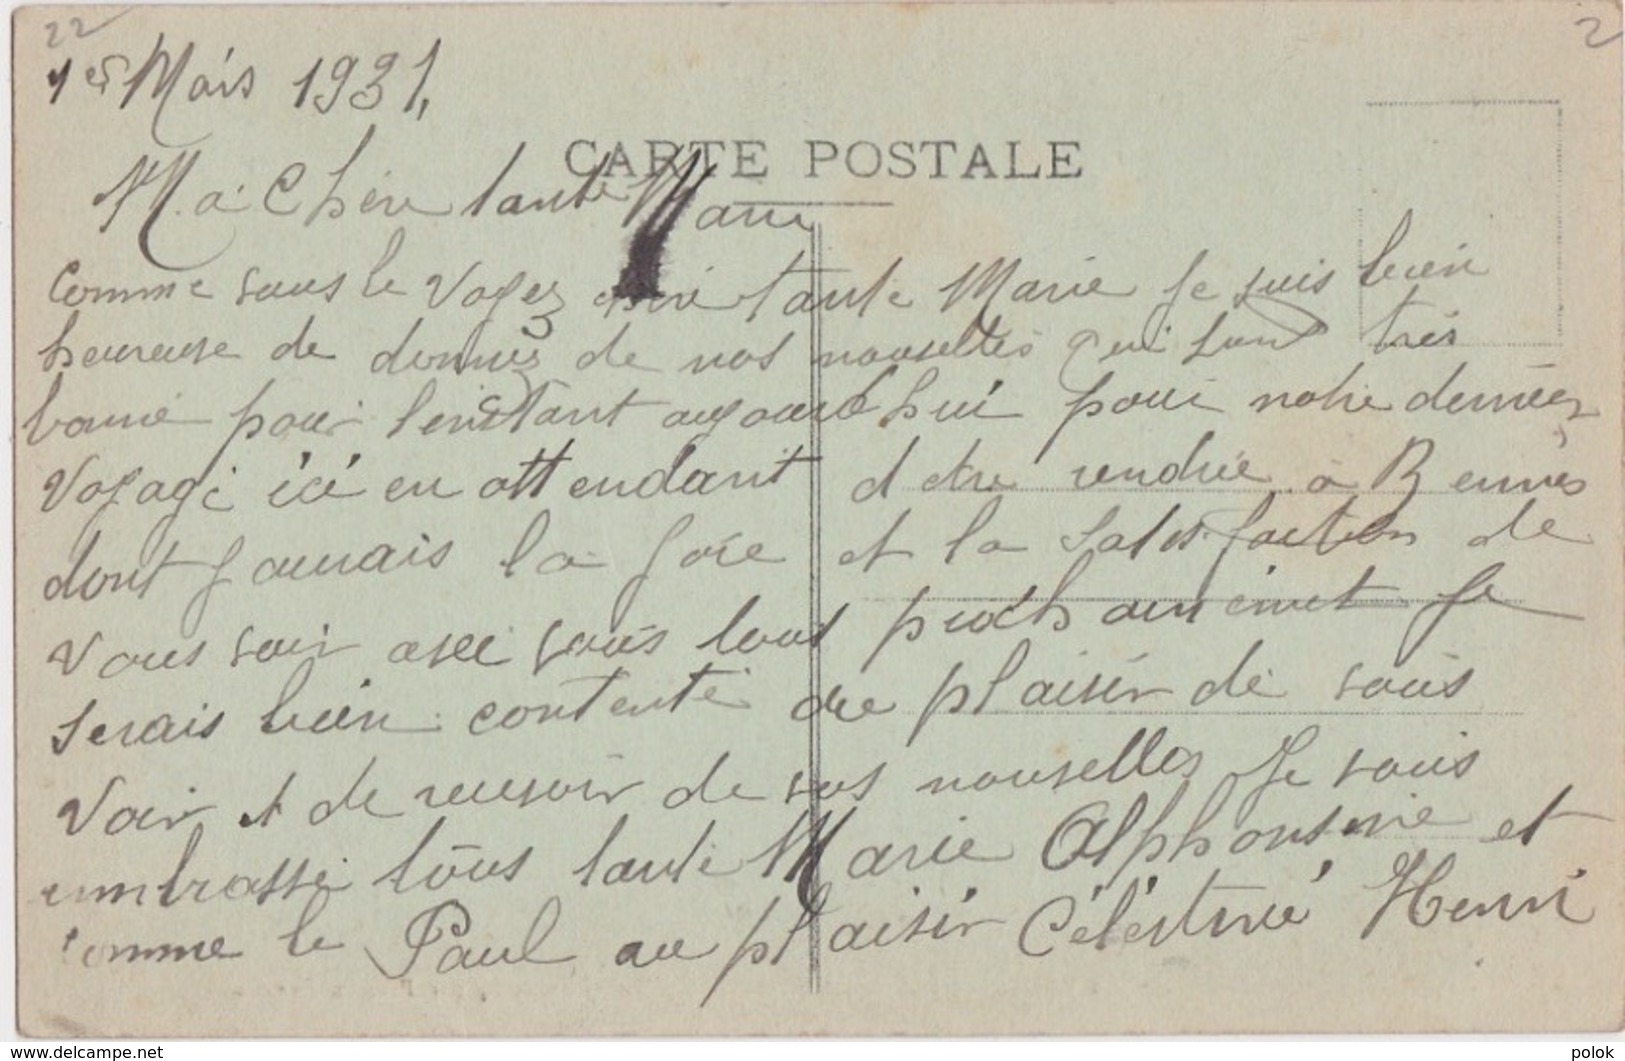 22
2
1er Mars 1931,
CARTE POSTALE
Ma Chère tante Marie
Comme vous le voyez chère tante Marie Je suis bien
heureuse de donnez de nos nouvelles qui sont très
bonne pour l'enstant aujourd'hui pour notre dernier
Voyage ici en attendant d etre rendue a Rennes
dont J aurais la Joie et la Satisfaction de
Vous voir avec vous tous prochainement Je
serais bien contente au plaisir de vous
Voir et de recevoir de vos nouvelles Je vous
embrasse tous tante Marie Alphonsine et
comme le Paul au plaisir Célestine Henri
www.delcampe.net
polok